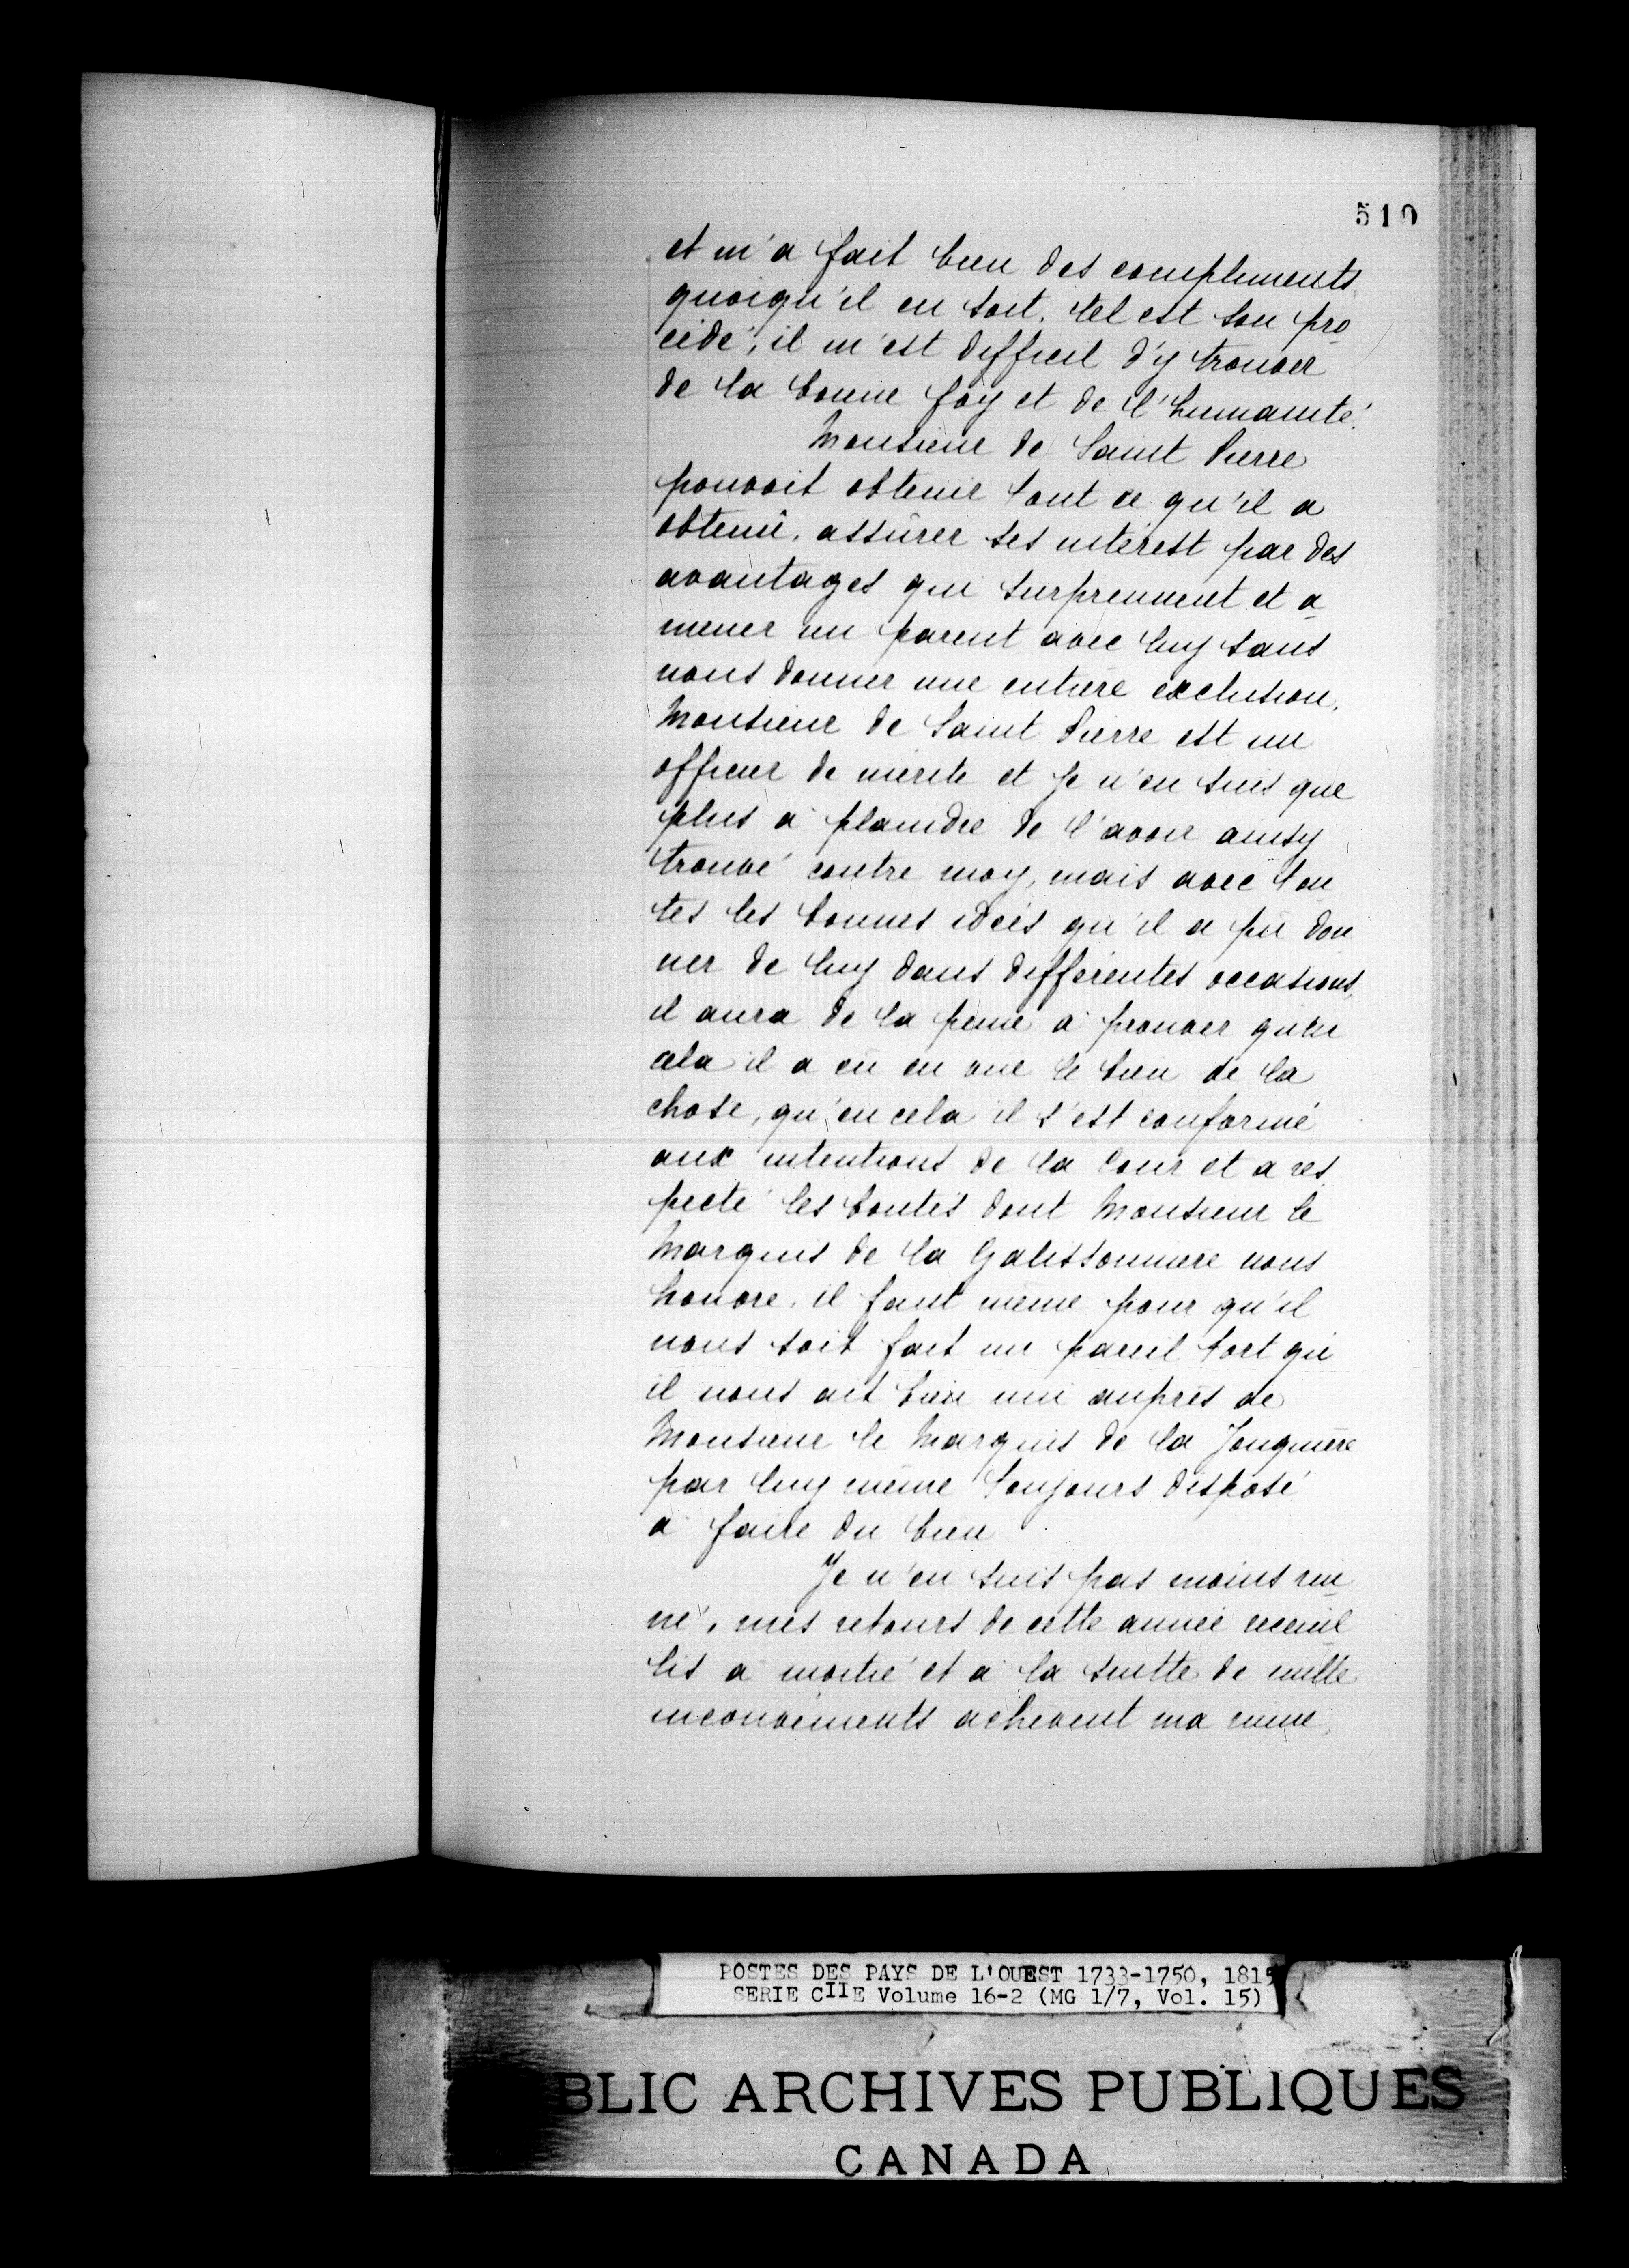 510
et m'a fait bien des compliments
quoiqu'il en soit, tel est son pro
cédé, il m'est difficil d'y trouver
de la bonne foy et de l'humanité.
Monsieur de Saint Pierre
pouvoit obtenir tout ce qu'il a
obtenû, assûrer ses intérest par des
avantages qui surprennent et a
mener un parent avec luy sans
nous donner une entière exclusion.
Monsieur de Saint Pierre est un
officier de mérite et Je n'en suis que
plus à plaindre de l'avoir ainsy
trouvé contre moy, mais avec tou
tes les bonnes idées qu'il a pû don
ner de luy dans différentes occasions,
il aura de la peine à prouver qu'en
cela il a eû en vue le bien de la
chose, qu'en cela il s'est conformé
aux intentions de la Cour et a res
pecté les bontés dont Monsieur le
Marquis de la Galissonnière nous
honore, il faut même pour qu'il
nous soit fait un pareil tort qu'
il nous ait bien nui auprès de
Monsieur le Marquis de la Jonquière
par luy même toujours disposé
à faire du bien
Je n'en suis pas moins rui
né, mes retours de cette année receuil
lis à moitié et à la suitte de mille
inconvéments achèvent ma ruine,
POSTES DES PAYS DE L'OUEST 1733-1750, 1815
SERIE CIIE Volume 16-2 (MG 1/7, Vol. 15)
BLIC ARCHIVES PUBLIQUES
CANADA